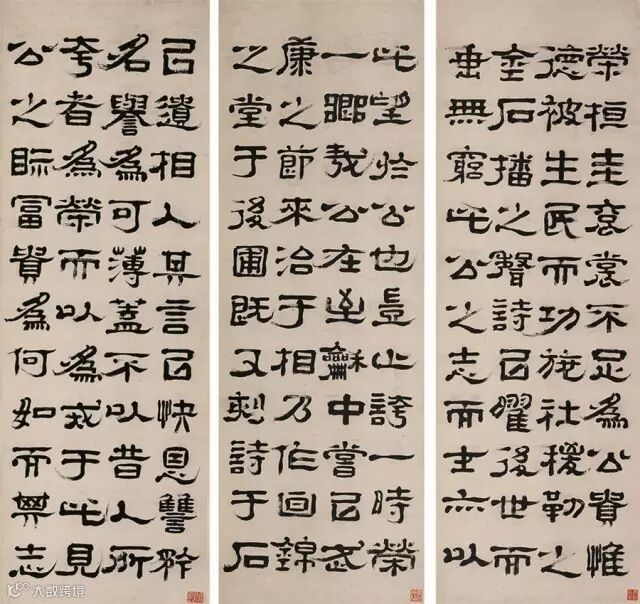 榮桓圭袞裳不足為公貴惟
德被生民而功施社稷勒之
金石播之聲詩㠯曜後世而
垂無窮此公之志而士亦以
此望於公也豈止誇一時榮
一鄉哉公在至龢中嘗㠯武
康之節來治于相乃作晝錦
之堂于後圃既又刻詩于石
㠯遺相人其言㠯快恩讐矜
名譽為可薄蓋不以昔人所
夸者為榮而以為戒于此見
公之眎富貴為何如而其志
大数跨境